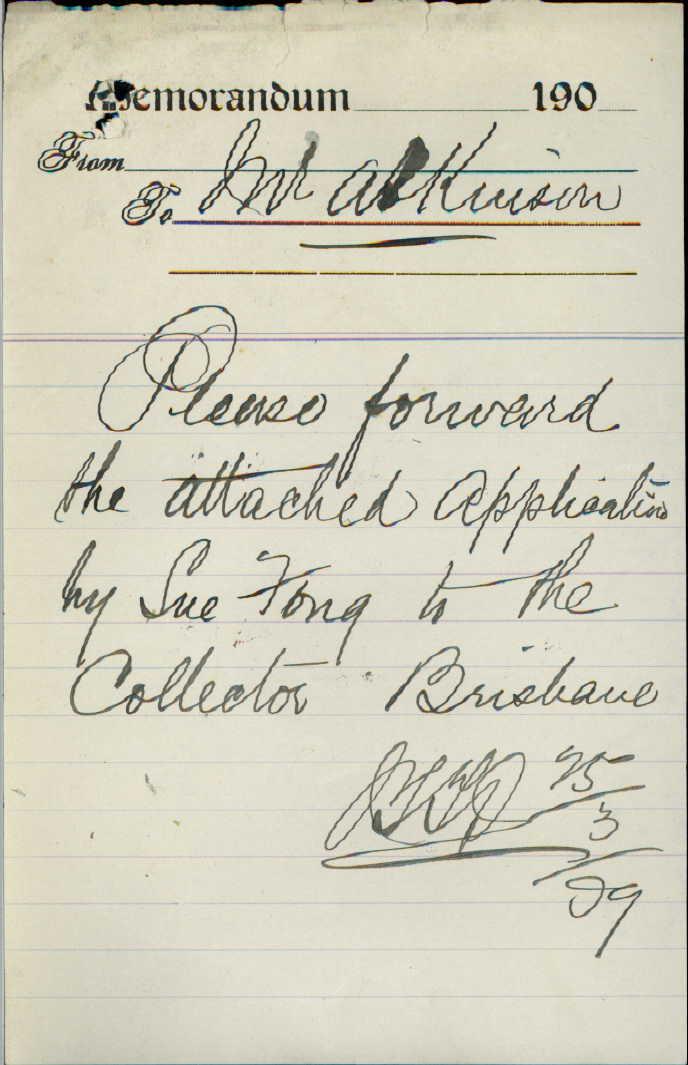 Memorandum 190
From
To Mr Atkinson
Please forward
the attached application
by Sue Fong to the
Collector Brisbane
25/3/09